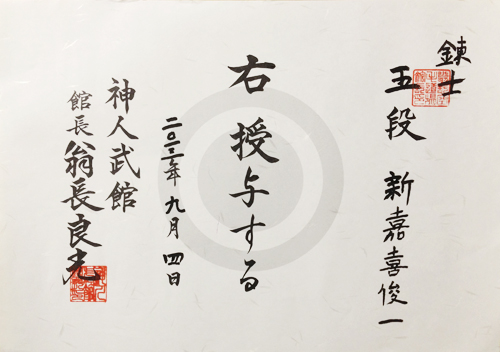 錬士
五段 新嘉喜俊一
右授与する
二〇二三年九月四日
神人武館
館長 翁長良光